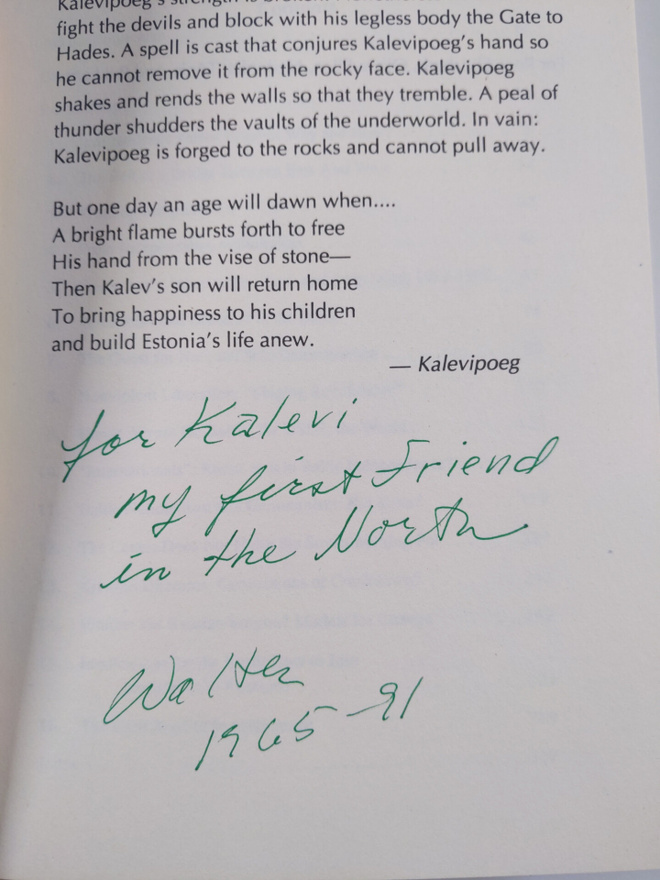 Kalevipoeg's strength is broken.
fight the devils and block with his legless body the Gate to
Hades. A spell is cast that conjures Kalevipoeg's hand so
he cannot remove it from the rocky face. Kalevipoeg
shakes and rends the walls so that they tremble. A peal of
thunder shudders the vaults of the underworld. In vain:
Kalevipoeg is forged to the rocks and cannot pull away.
But one day an age will dawn when....
A bright flame bursts forth to free
His hand from the vise of stone—
Then Kalev's son will return home
To bring happiness to his children
and build Estonia's life anew.
— Kalevipoeg
for Kalevi
my first Friend
in the North
Walter
1965-91